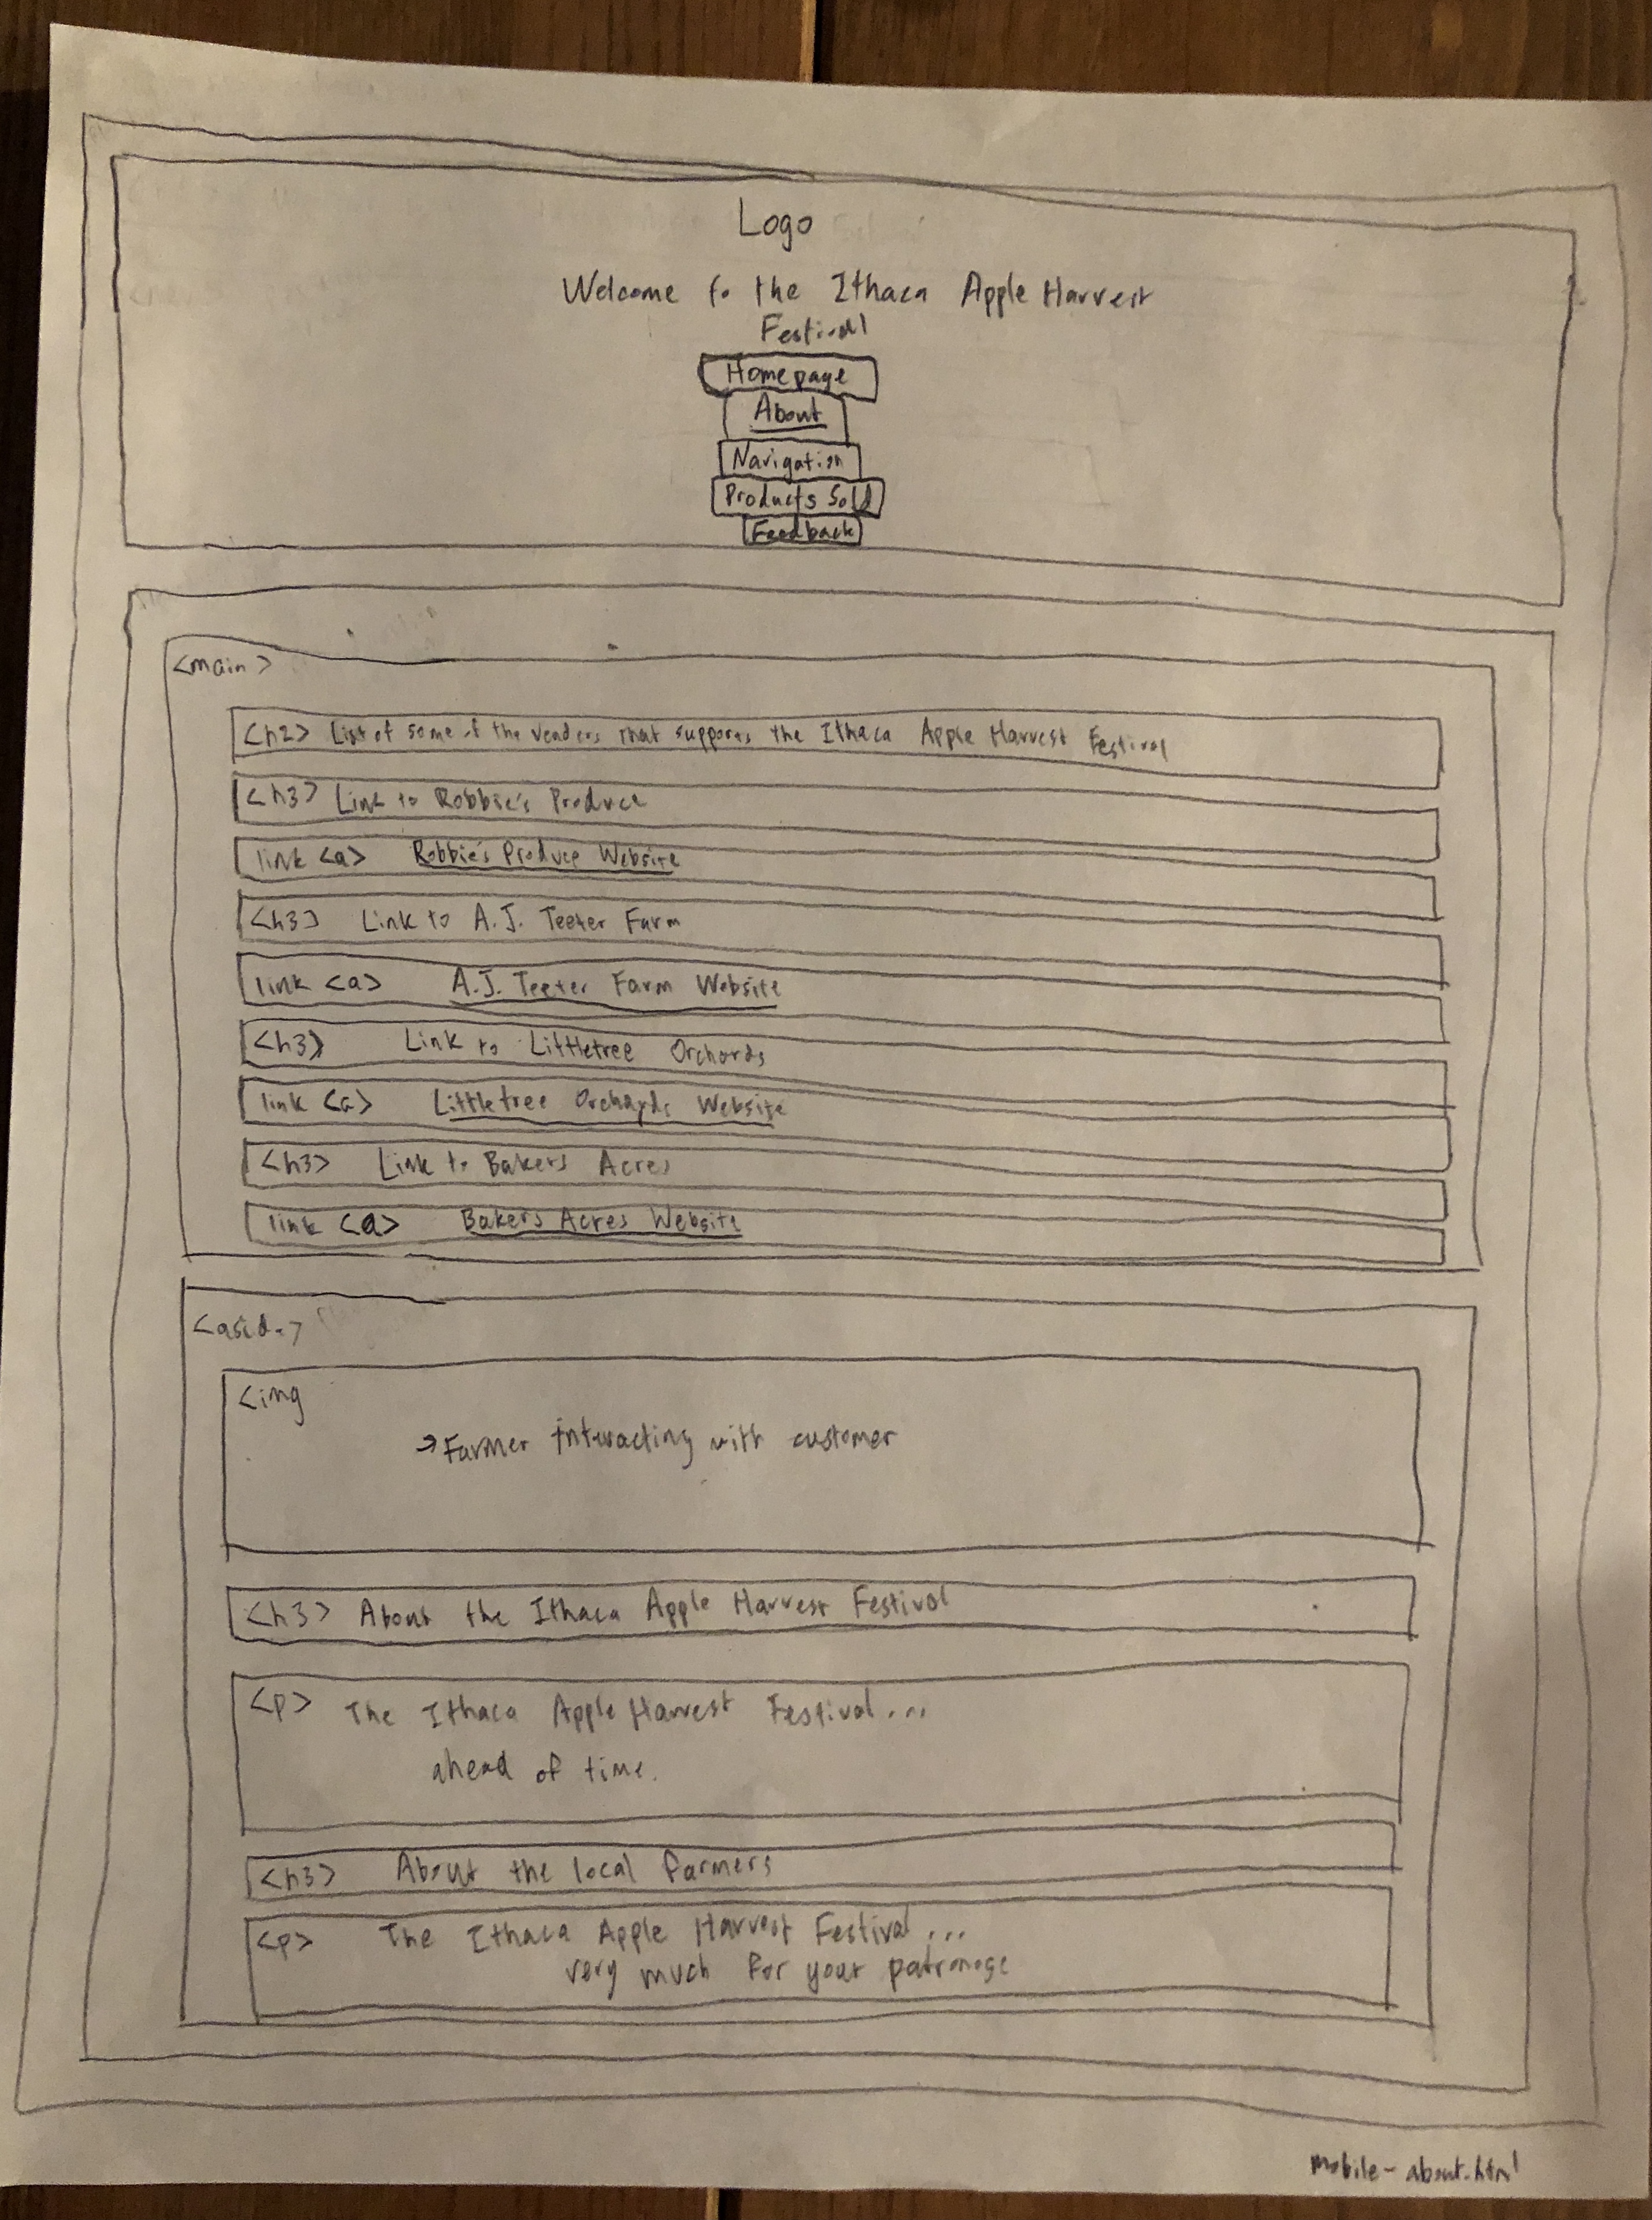 Logo
Welcome to the Ithaca Apple Harvest
Festival
Homepage
About
Navigation
Products Sold
Feedback
<main>
<h2> List of some of the venders that supports the Ithaca Apple Harvest Festival
<h3> Link to Robbie's Produce
link <a> Robbie's Produce Website
<h3> Link to A.J. Teeter Farm
link <a> A.J. Teeter Farm Website
<h3> Link to Littletree Orchards
link <a> Littletree Orchards Website
<h3> Link to Bakers Acres
link <a> Bakers Acres Website
<aside>
<img
→Farmer interacting with customer
<h3> About the Ithaca Apple Harvest Festival
<p> The Ithaca Apple Harvest Festival...
ahead of time.
<h3> About the local farmers
<p> The Ithaca Apple Harvest Festival...
very much for your patronage
mobile-about.html